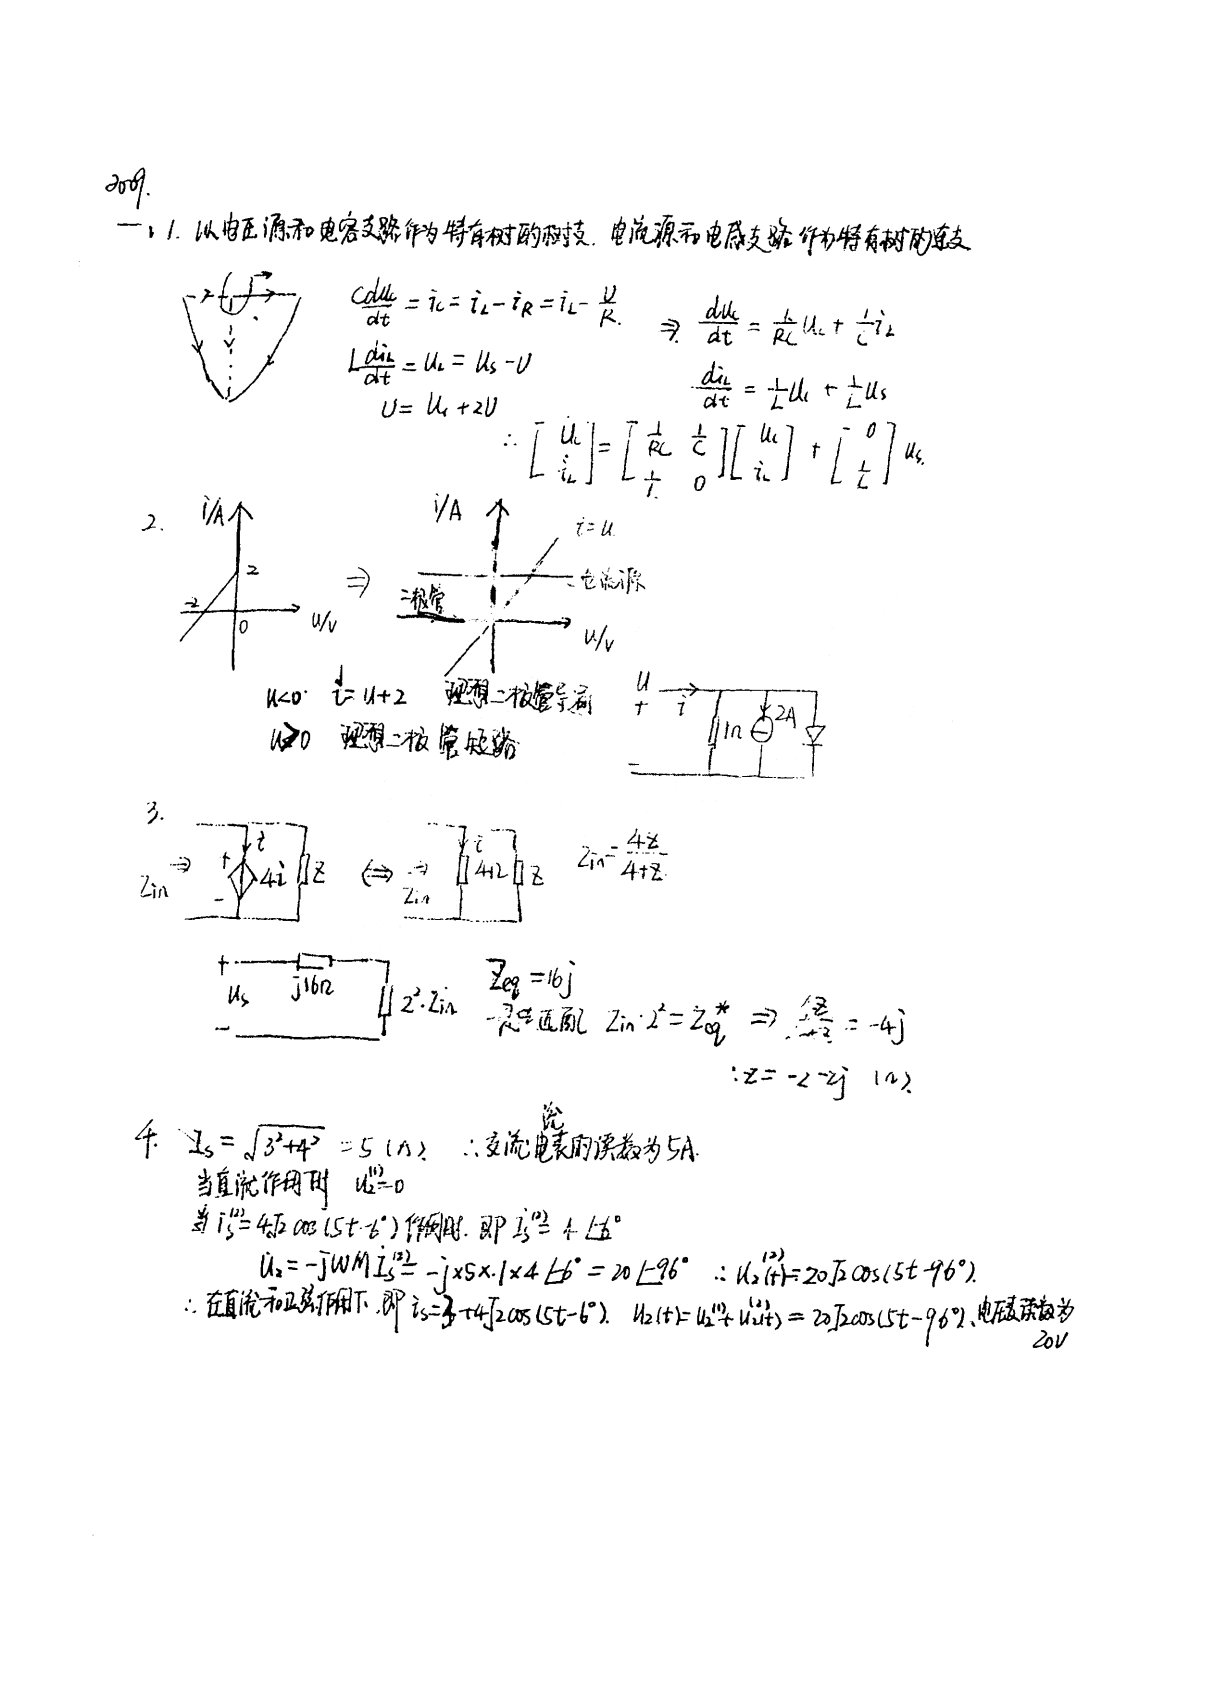 2009.
一:1. 以电压源和电容支路作为特有树的树支. 电流源和电感支路作为特有树的连支
Cduc/dt = ic = iL - iR = iL - U/R.
⇒ duc/dt = 1/RC uc + 1/C iL
Ldil/dt = uL = us - U
diL/dt = 1/L uc + 1/L us
U = uc + 2U
∴ [u̇c i̇L] = [1/RC 1/C 1/L 0][uc iL] + [0 1/L] us.
2. i/A 2 -2 0 u/v ⇒ i/A i=u 电流源 二极管 u/v
u<0 i=u+2 理想二极管
u≥0 理想二极管短路
u + i - 1Ω 2A
3.
Zin ⇒ + i 4i - Z ⇔ Zin i 4Ω Z Zin = 4Z/4+Z
+ us - j16Ω 2²·Zin Zeq = 16j
匹配 Zin·2² = Zeq* ⇒ = -4j
∴ Z = -2-2j (Ω).
4. Is = √3²+4² = 5 (A). ∴ 交流电流表的读数为5A.
当直流作用时 u2⁽¹⁾=0
当 is⁽²⁾=4√2cos(5t-6°) 作用时. 即 İs⁽²⁾= 4∠-6°
U̇2 = -jWM İs⁽²⁾= -j×5×1×4∠-6° = 20∠-96° ∴ u2⁽²⁾(t)=20√2cos(5t-96°).
∴ 在直流和正弦作用下. 即 is=3+4√2cos(5t-6°). u2(t)=u2⁽¹⁾+u2⁽²⁾(t) = 20√2cos(5t-96°). 电压表读数为
20V